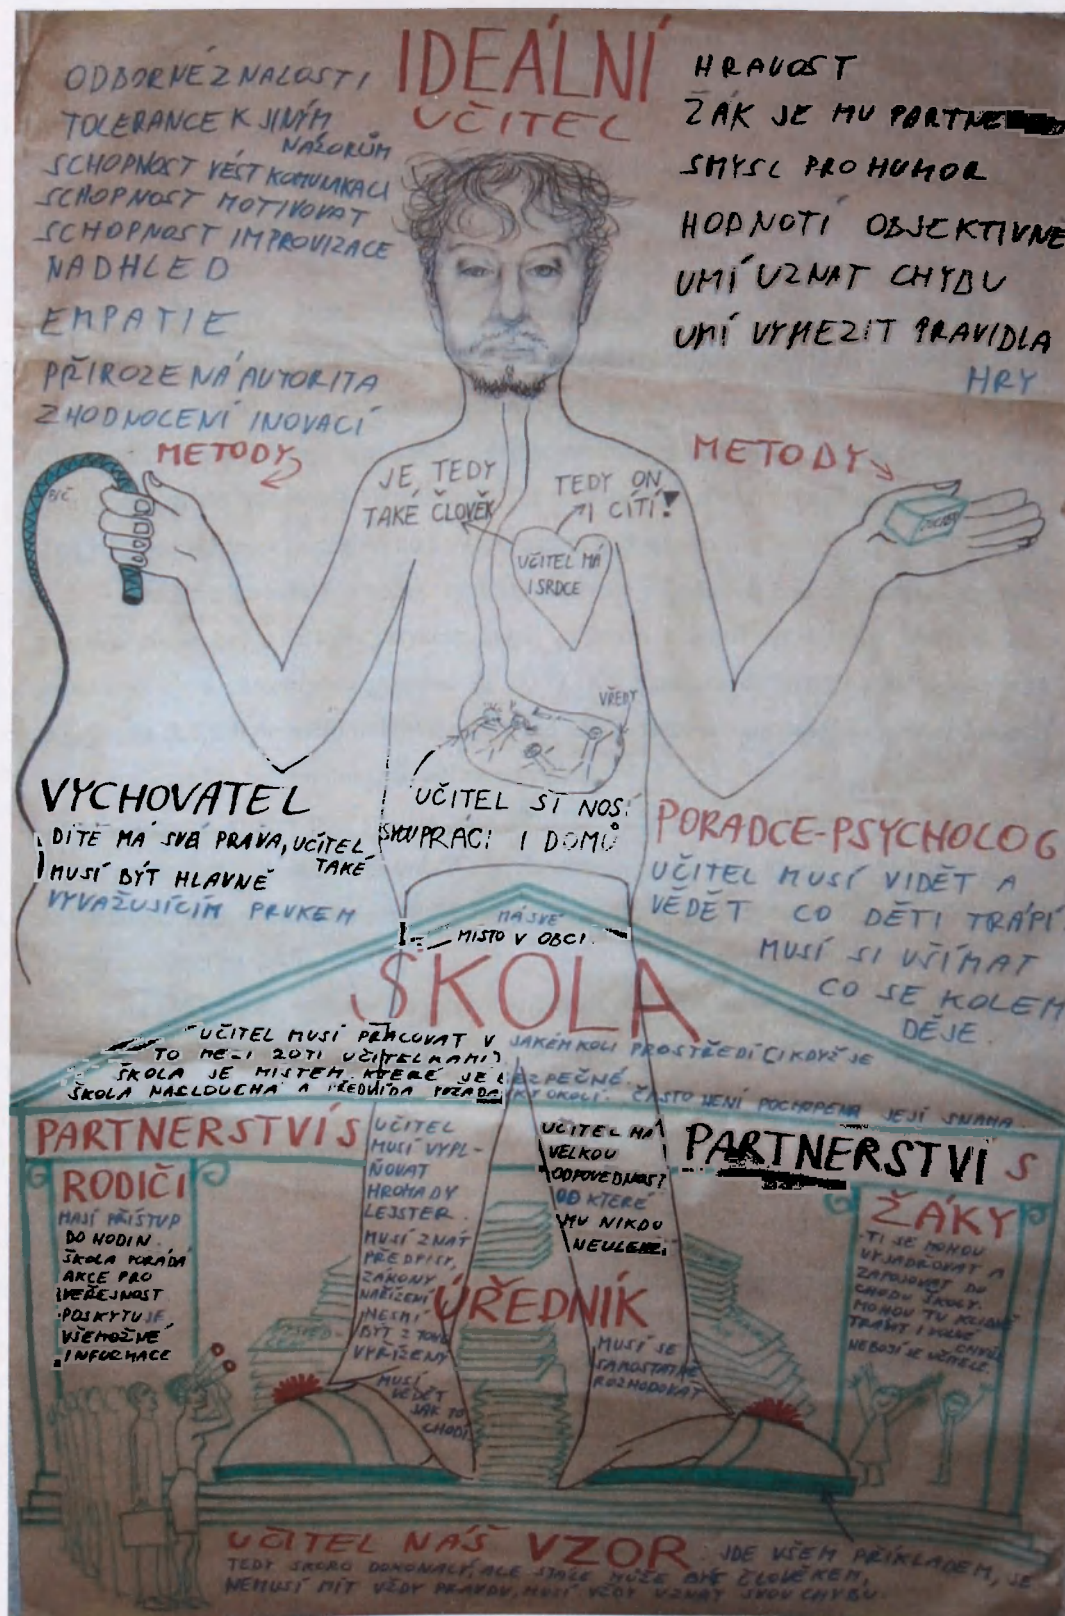 IDEÁLNÍ
UČITEL
ODBORNÉ ZNALOSTI
TOLERANCE K JINÝM
NÁZORŮM
SCHOPNOST VÉST KOMUNIKACI
SCHOPNOST MOTIVOVAT
SCHOPNOST IMPROVIZACE
NADHLED
EMPATIE
PŘIROZENÁ AUTORITA
ZHODNOCENÍ INOVACÍ
METODY
HRAVOST
ŽÁK JE MU PARTNE
SMYSL PRO HUMOR
HODNOTÍ OBJEKTIVNĚ
UMÍ UZNAT CHYBU
UMÍ VYMEZIT PRAVIDLA
HRY
METODY
BIČ
JE, TEDY
TAKÉ ČLOVĚK
TEDY ON
I CÍTÍ!
UČITEL MÁ
I SRDCE
VŘEDY
VYCHOVATEL
DÍTĚ MÁ SVÁ PRÁVA, UČITEL
TAKÉ
MUSÍ BÝT HLAVNĚ
VYVAŽUJÍCÍM PRVKEM
UČITEL SI NOSÍ
SVOU PRÁCI I DOMŮ
PORADCE-PSYCHOLOG
UČITEL MUSÍ VIDĚT A
VĚDĚT CO DĚTI TRÁPÍ
MUSÍ SI VŠÍMAT
CO SE KOLEM
DĚJE
MÁ SVÉ
MÍSTO V OBCI
ŠKOLA
UČITEL MUSÍ PRACOVAT V JAKÉMKOLI PROSTŘEDÍ (I KDYŽ JE
TO MEZI 20TI UČITELKAMI)
ŠKOLA JE MÍSTEM, KTERÉ JE BEZPEČNÉ.
ŠKOLA NASLOUCHÁ A PŘEDVÍDÁ POŽADAVKY OKOLÍ. ČASTO NENÍ POCHOPENA JEJÍ SNAHA
PARTNERSTVÍ S
RODIČI
MAJÍ PŘÍSTUP
DO HODIN
ŠKOLA POŘÁDÁ
AKCE PRO
VEŘEJNOST
POSKYTUJE
VŠEMOŽNÉ
INFORMACE
UČITEL
MUSÍ VYPL-
ŇOVAT
HROMADY
LEJSTER
MUSÍ ZNÁT
PŘEDPISY,
ZÁKONY
NAŘÍZENÍ
NESMÍ
BÝT Z TOHO
VYŘÍZENÝ
MUSÍ
VĚDĚT
JAK TO
CHODÍ
UČITEL MÁ
VELKOU
ODPOVĚDNOST
OD KTERÉ
MU NIKDO
NEULEHČÍ
ÚŘEDNÍK
MUSÍ SE
SAMOSTATNĚ
ROZHODOVAT
PARTNERSTVÍ S
ŽÁKY
TI SE MOHOU
VYJADŘOVAT A
ZAPOJOVAT DO
CHODU ŠKOLY.
MOHOU TU KLIDNĚ
TRÁVIT I VOLNÉ
CHVÍLE
NEBOJÍ SE UČITELE.
UČITEL NÁŠ VZOR JDE VŠEM PŘÍKLADEM, JE
TEDY SKORO DOKONALÝ, ALE STÁLE MŮŽE BÝT ČLOVĚKEM,
NEMUSÍ MÍT VŽDY PRAVDU, MUSÍ VŽDY UZNAT SVOU CHYBU.